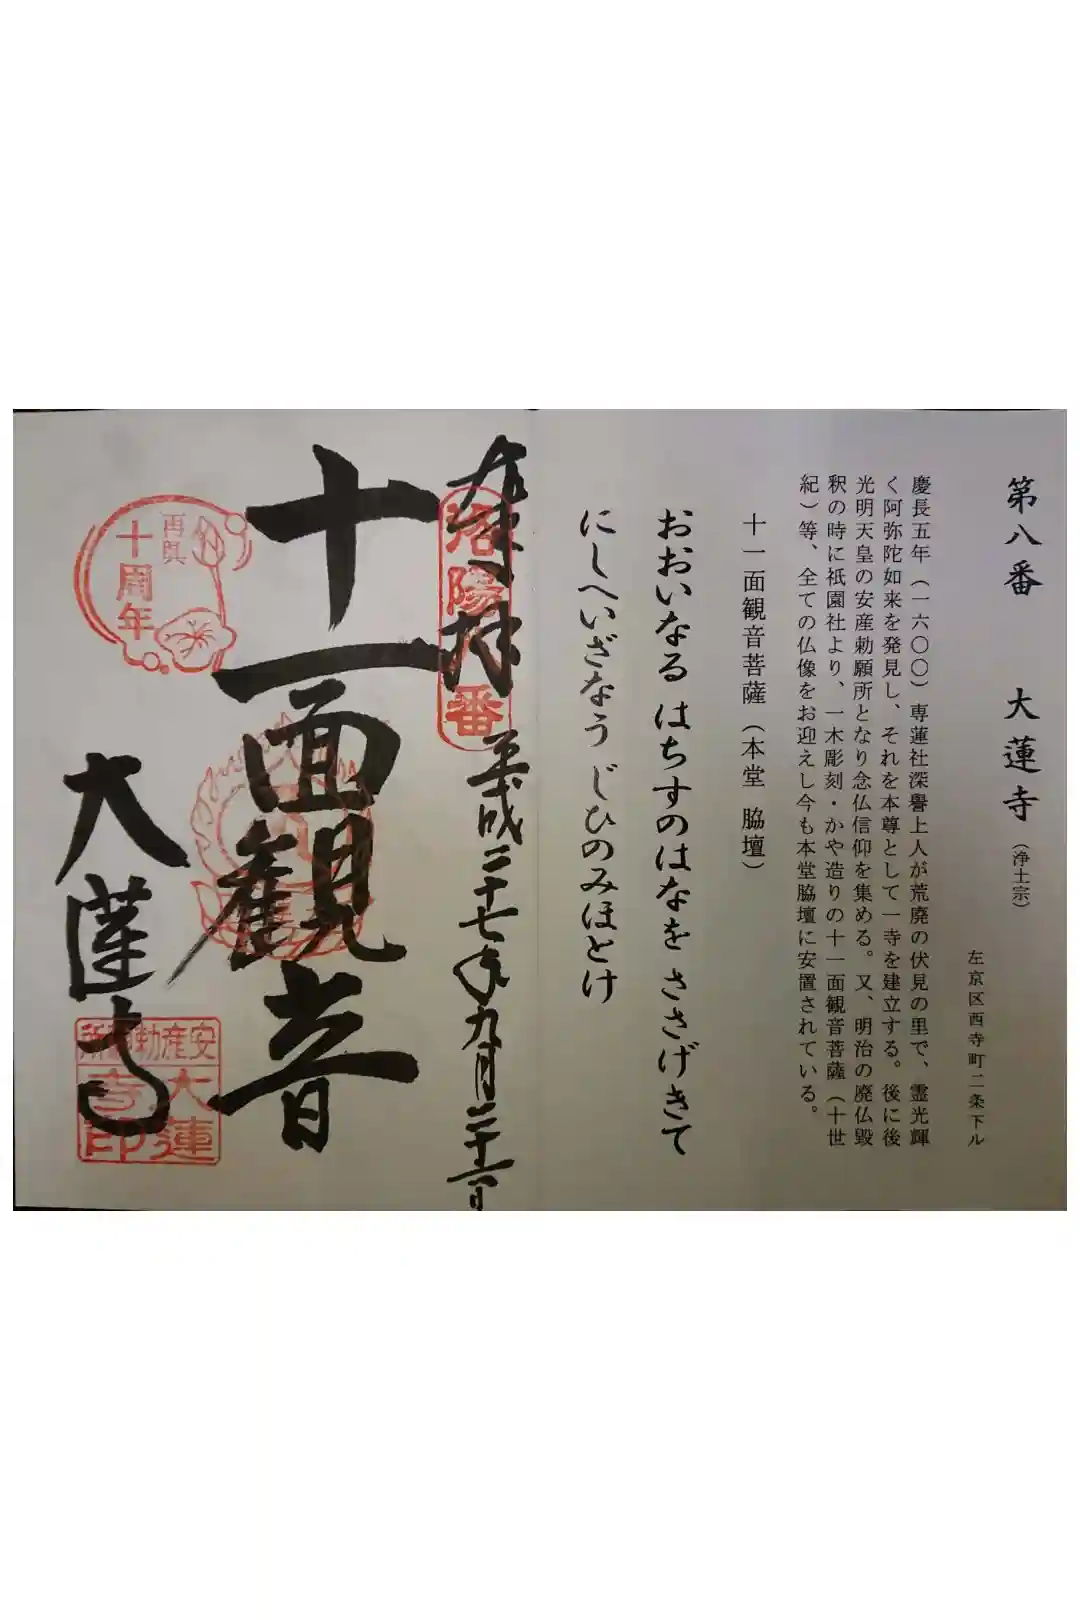 第八番 大蓮寺（浄土宗）
左京区西寺町二条下ル
慶長五年（一六〇〇）専蓮社深譽上人が荒廃の伏見の里で、霊光輝
く阿弥陀如来を発見し、それを本尊として一寺を建立する。後に後
光明天皇の安産勅願所となり念仏信仰を集める。又、明治の廃仏毀
釈の時に祇園社より、一木彫刻・かや造りの十一面観音菩薩（十世
紀）等、全ての仏像をお迎えし今も本堂脇壇に安置されている。
十一面観音菩薩（本堂 脇壇）
おおいなる はちすのはなを ささげきて
にしへいざなう じひのみほとけ
奉拝
洛陽八番
平成二十七年九月二十二日
十一面観音
再興
十周年
大蓮寺
安産勅願所
大蓮
寺印